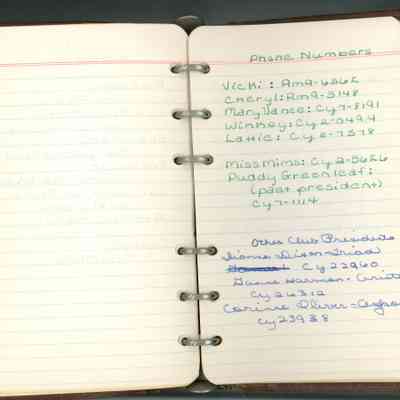 Phone Numbers
Vicki: Am9-6262
Cheryl: Am9-5148
Mary Vance: Cy7-8191
Winney: Cy2-0494
Lattie: Cy2-7578
Miss Mims: Cy2-5656
Puddy Greenleaf:
(past president)
Cy7-1114
Other Club Presidents
Dianne Dixon-Triad
Cy 22960
Harmon-
Cy 26312
Corinne Oliver-
Cy 23938